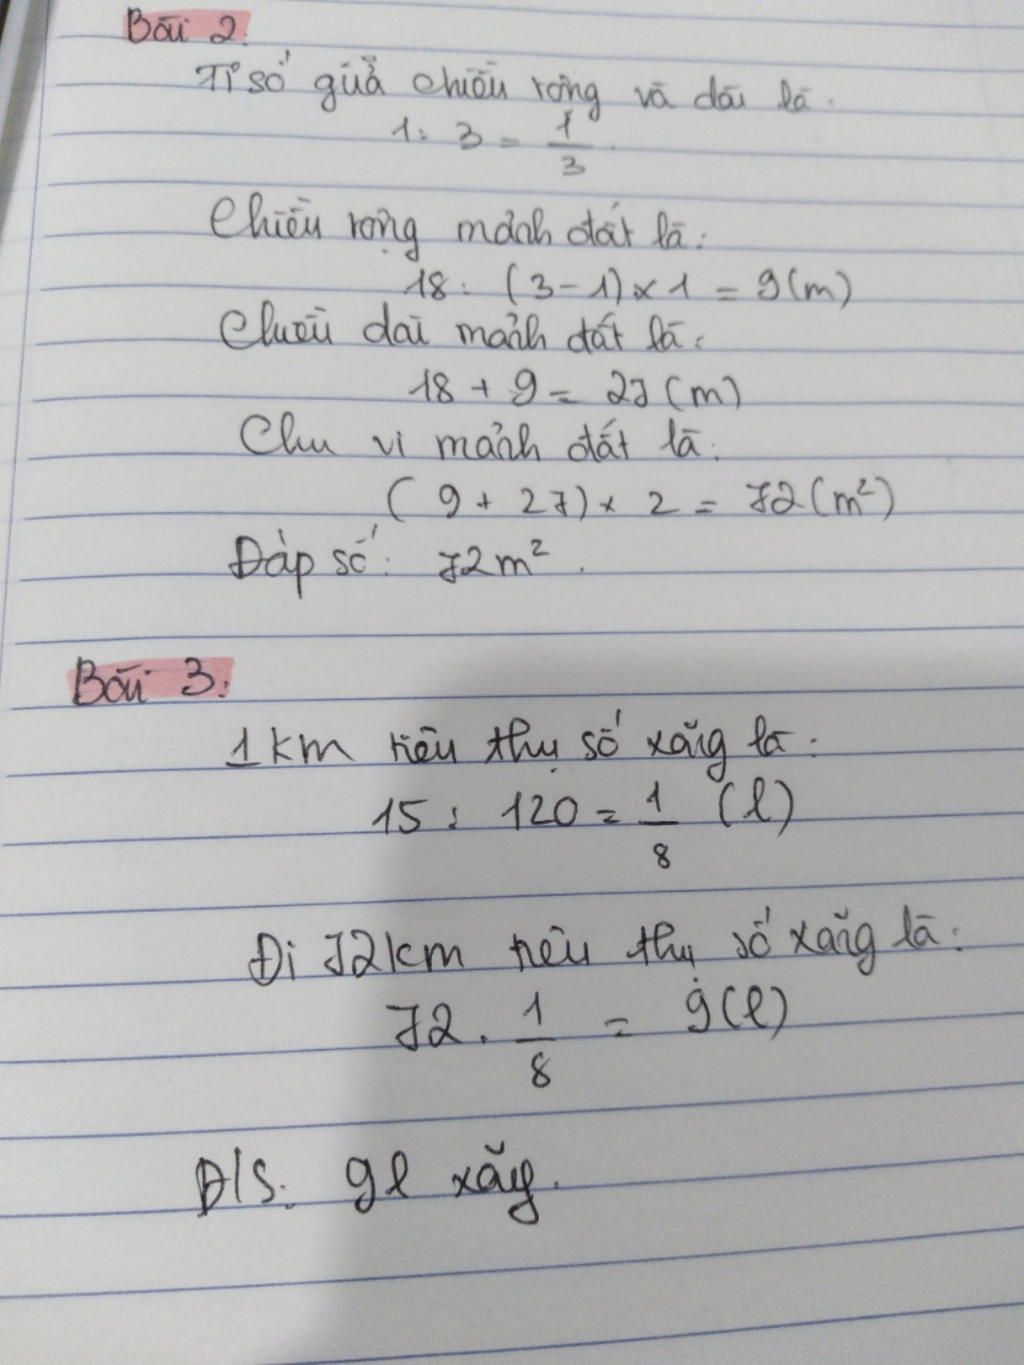 Bài 2.
Tỉ số giữa chiều rộng và dài là.
1: 3 = 1/3
Chiều rộng mảnh đất là:
18: (3-1)×1 = 9(m)
Chiều dài mảnh đất là:
18 + 9 = 27(m)
Chu vi mảnh đất là.
(9 + 27)× 2 = 72(m²)
Đáp số: 72m².
Bài 3:
1km tiêu thụ số xăng là:
15: 120 = 1/8 (l)
Đi 72km tiêu thụ số xăng là:
72. 1/8 = 9(l)
Đ/S: 9l xăng.